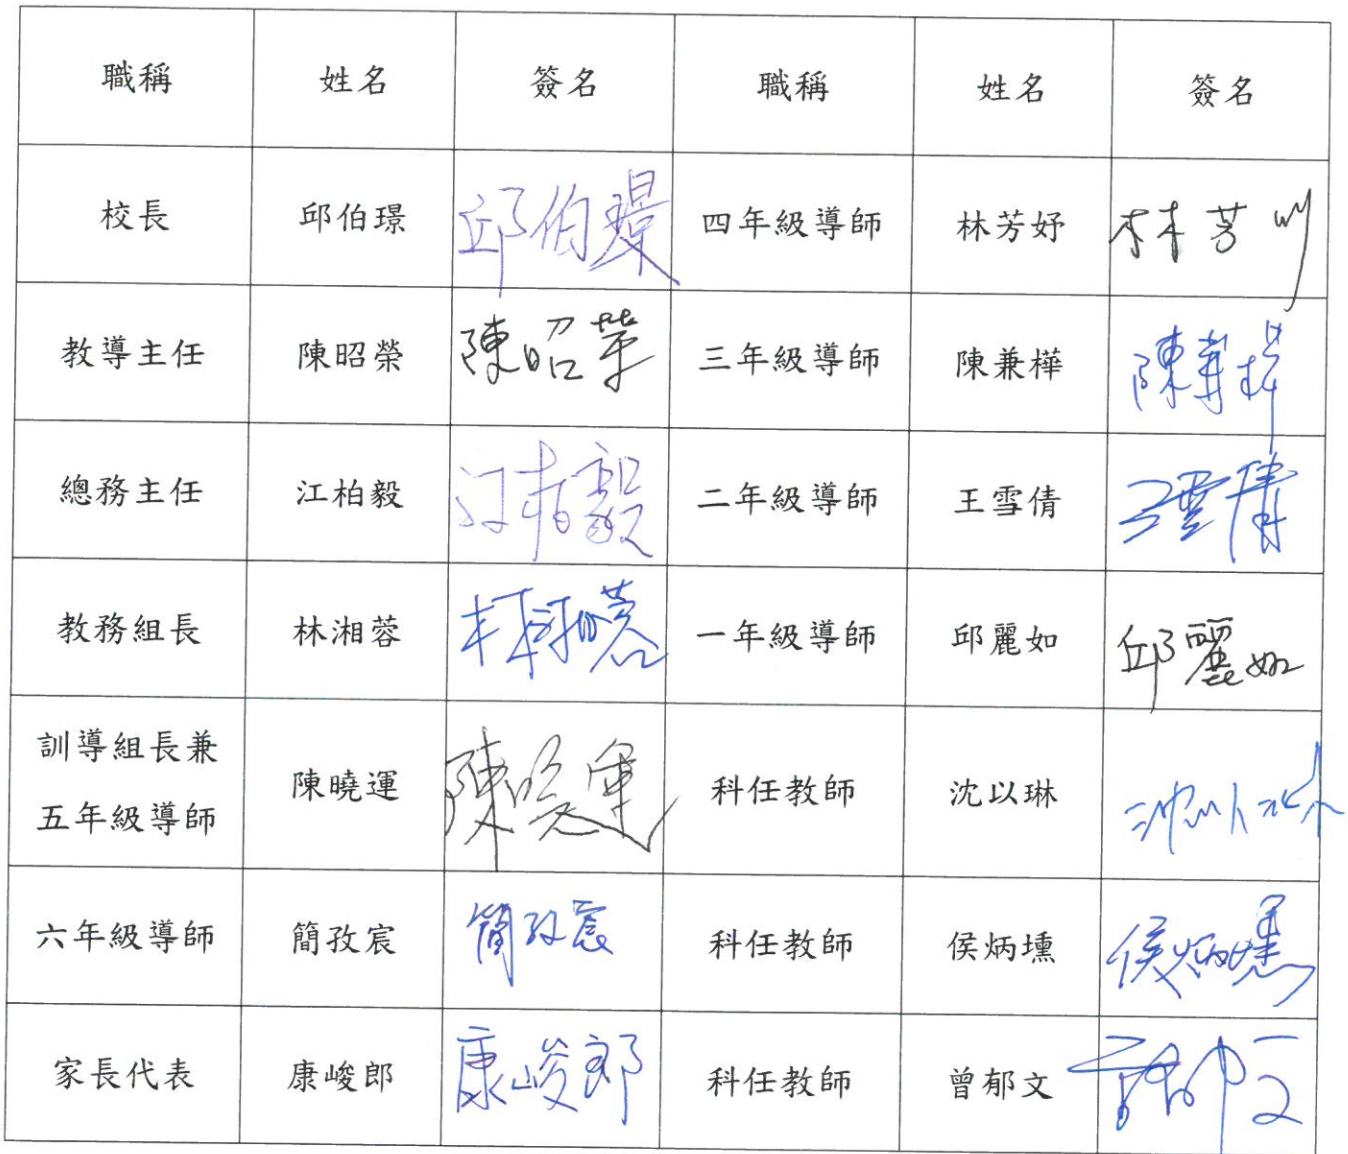 職稱 姓名 簽名 職稱 姓名 簽名
校長 邱伯璟 邱伯璟 四年級導師 林芳妤 林芳
教導主任 陳昭榮 陳昭荣 三年級導師 陳兼樺 陳
總務主任 江柏毅 江柏毅 二年級導師 王雪倩 王雪倩
教務組長 林湘蓉 林湘蓉 一年級導師 邱麗如 邱麗如
訓導組長兼
五年級導師 陳曉運 陳 科任教師 沈以琳 沈以琳
六年級導師 簡孜宸 簡孜宸 科任教師 侯炳壎 侯炳壎
家長代表 康峻郎 康峻郎 科任教師 曾郁文